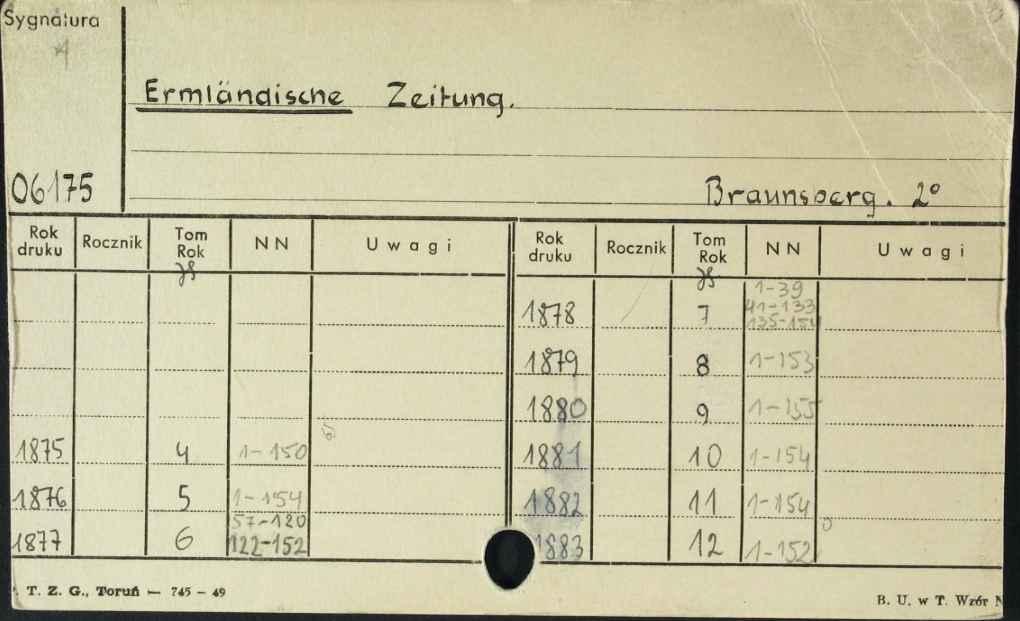 Sygnatura
Ermländische Zeitung.
06175
Braunsberg. 2°
Rok druku Rocznik Tom Rok NN Uwagi Rok druku Rocznik Tom Rok NN Uwagi
1-39
1878 7 41-133
135-154
1879 8 1-153
1880 9 1-155
1875 4 1-150 1881 10 1-154
1876 5 1-154 1882 11 1-154
57-120
1877 6 122-152 1883 12 1-152
T. Z. G., Toruń — 745 - 49
B. U. w T. Wzór